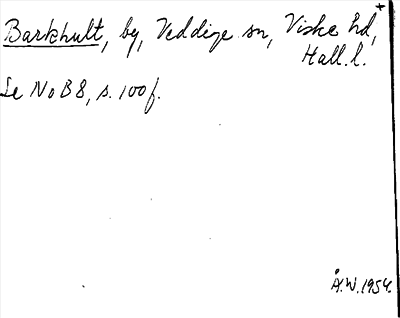 Barkhult, by, Veddige sn, Viske hd,
Hall. l.
Se NoB 8, s. 100 f.
Å.W. 1954.